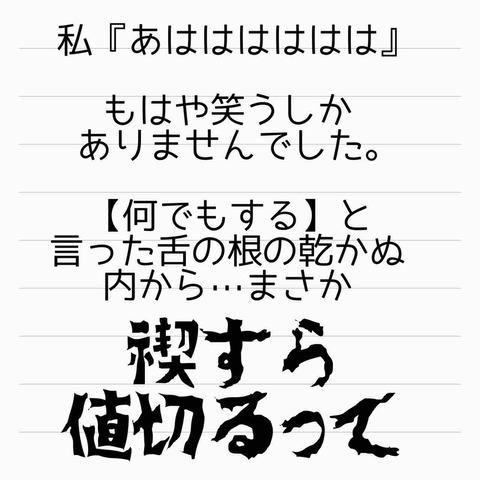 私『あはははははは』
もはや笑うしか
ありませんでした。
【何でもする】と
言った舌の根の乾かぬ
内から…まさか
禊すら
値切るって